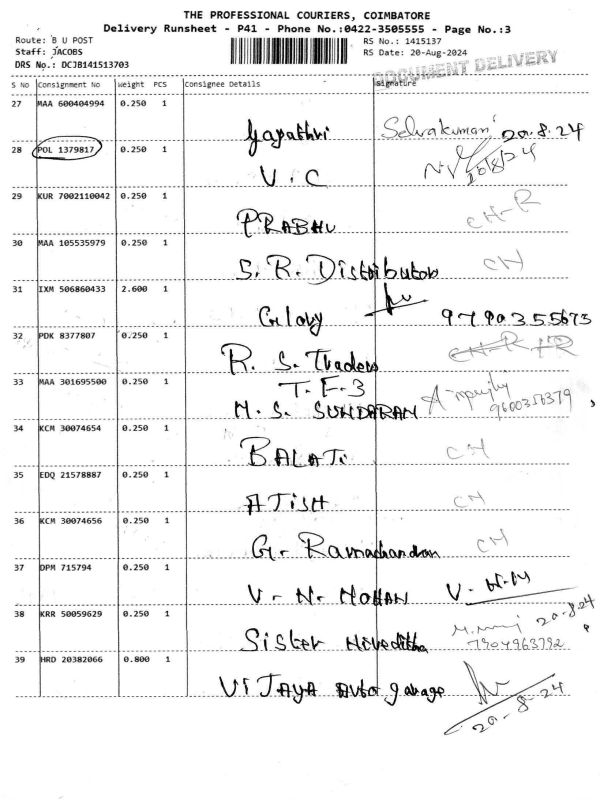 THE PROFESSIONAL COURIERS, COIMBATORE
Delivery Runsheet - P41 - Phone No.:0422-3505555 - Page No.:3
Route: B U POST
RS No.: 1415137
Staff: JACOBS
RS Date: 20-Aug-2024
DRS No.: DCJB141513703
DOCUMENT DELIVERY
S No Consignment No Weight PCS Consignee Details Signature
27 MAA 600404994 0.250 1
Gayathri Selvakumari 20.8.24
28 POL 1379817 0.250 1
V.C
29 KUR 7002110042 0.250 1
PRABHU CH-R
30 MAA 105535979 0.250 1
S.R. Distributors CH
31 IXM 506860433 2.600 1
Glory 9790355673
32 PDK 8377807 0.250 1
R.S. Traders
33 MAA 301695500 0.250 1
T.F-3
M.S. SUNDARAN 9600356379
34 KCM 30074654 0.250 1
BALAJI CH
35 EDQ 21578887 0.250 1
ATISH CH
36 KCM 30074656 0.250 1
G. Ramachandran CH
37 DPM 715794 0.250 1
V.N. MOHAN V.
38 KRR 50059629 0.250 1
20.8.24
Sister Niveditha 7904963792
39 HRD 20382066 0.800 1
VIJAYA Auto garage
20-8-24